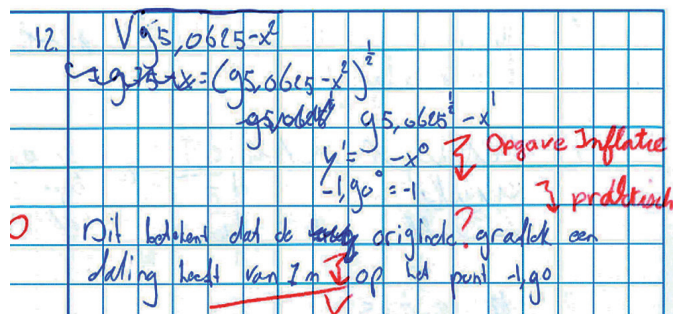 12. √95,0625-x²
x=(95,0625-x²)^½
95,0625^½ - x^1
y'= -x⁰ Opgave Inflatie
-1,90⁰ = -1 praktisch
0 Dit betekent dat de originele? grafiek een
daling heeft van 1 m op het punt -1,90